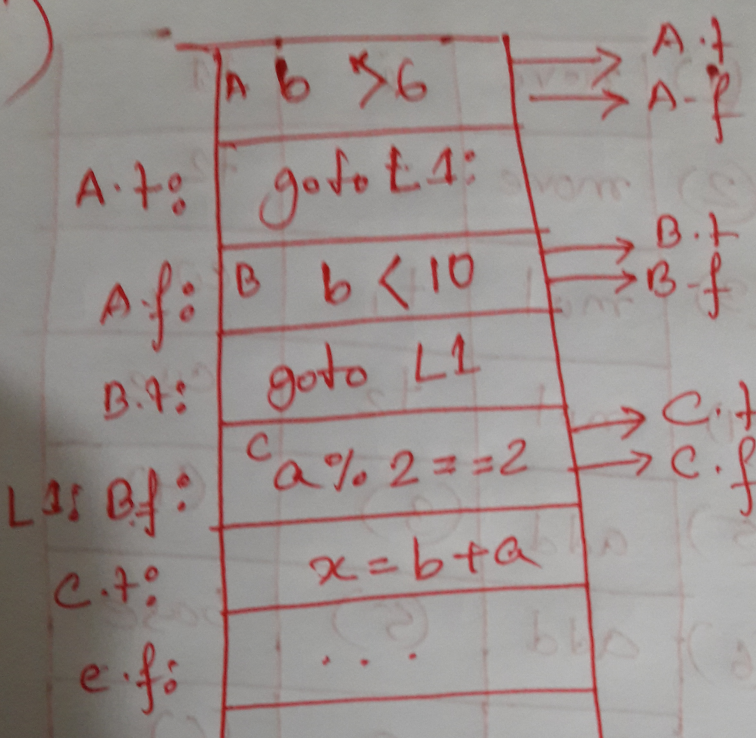 A b > 6 → A.t
→ A-f
A.t: goto L1:
A.f: B b < 10 → B.t
→ B-f
B.t: goto L1
L1: B.f: C a % 2 == 2 → C.t
→ C.f
C.t: x = b + a
e.f: ...